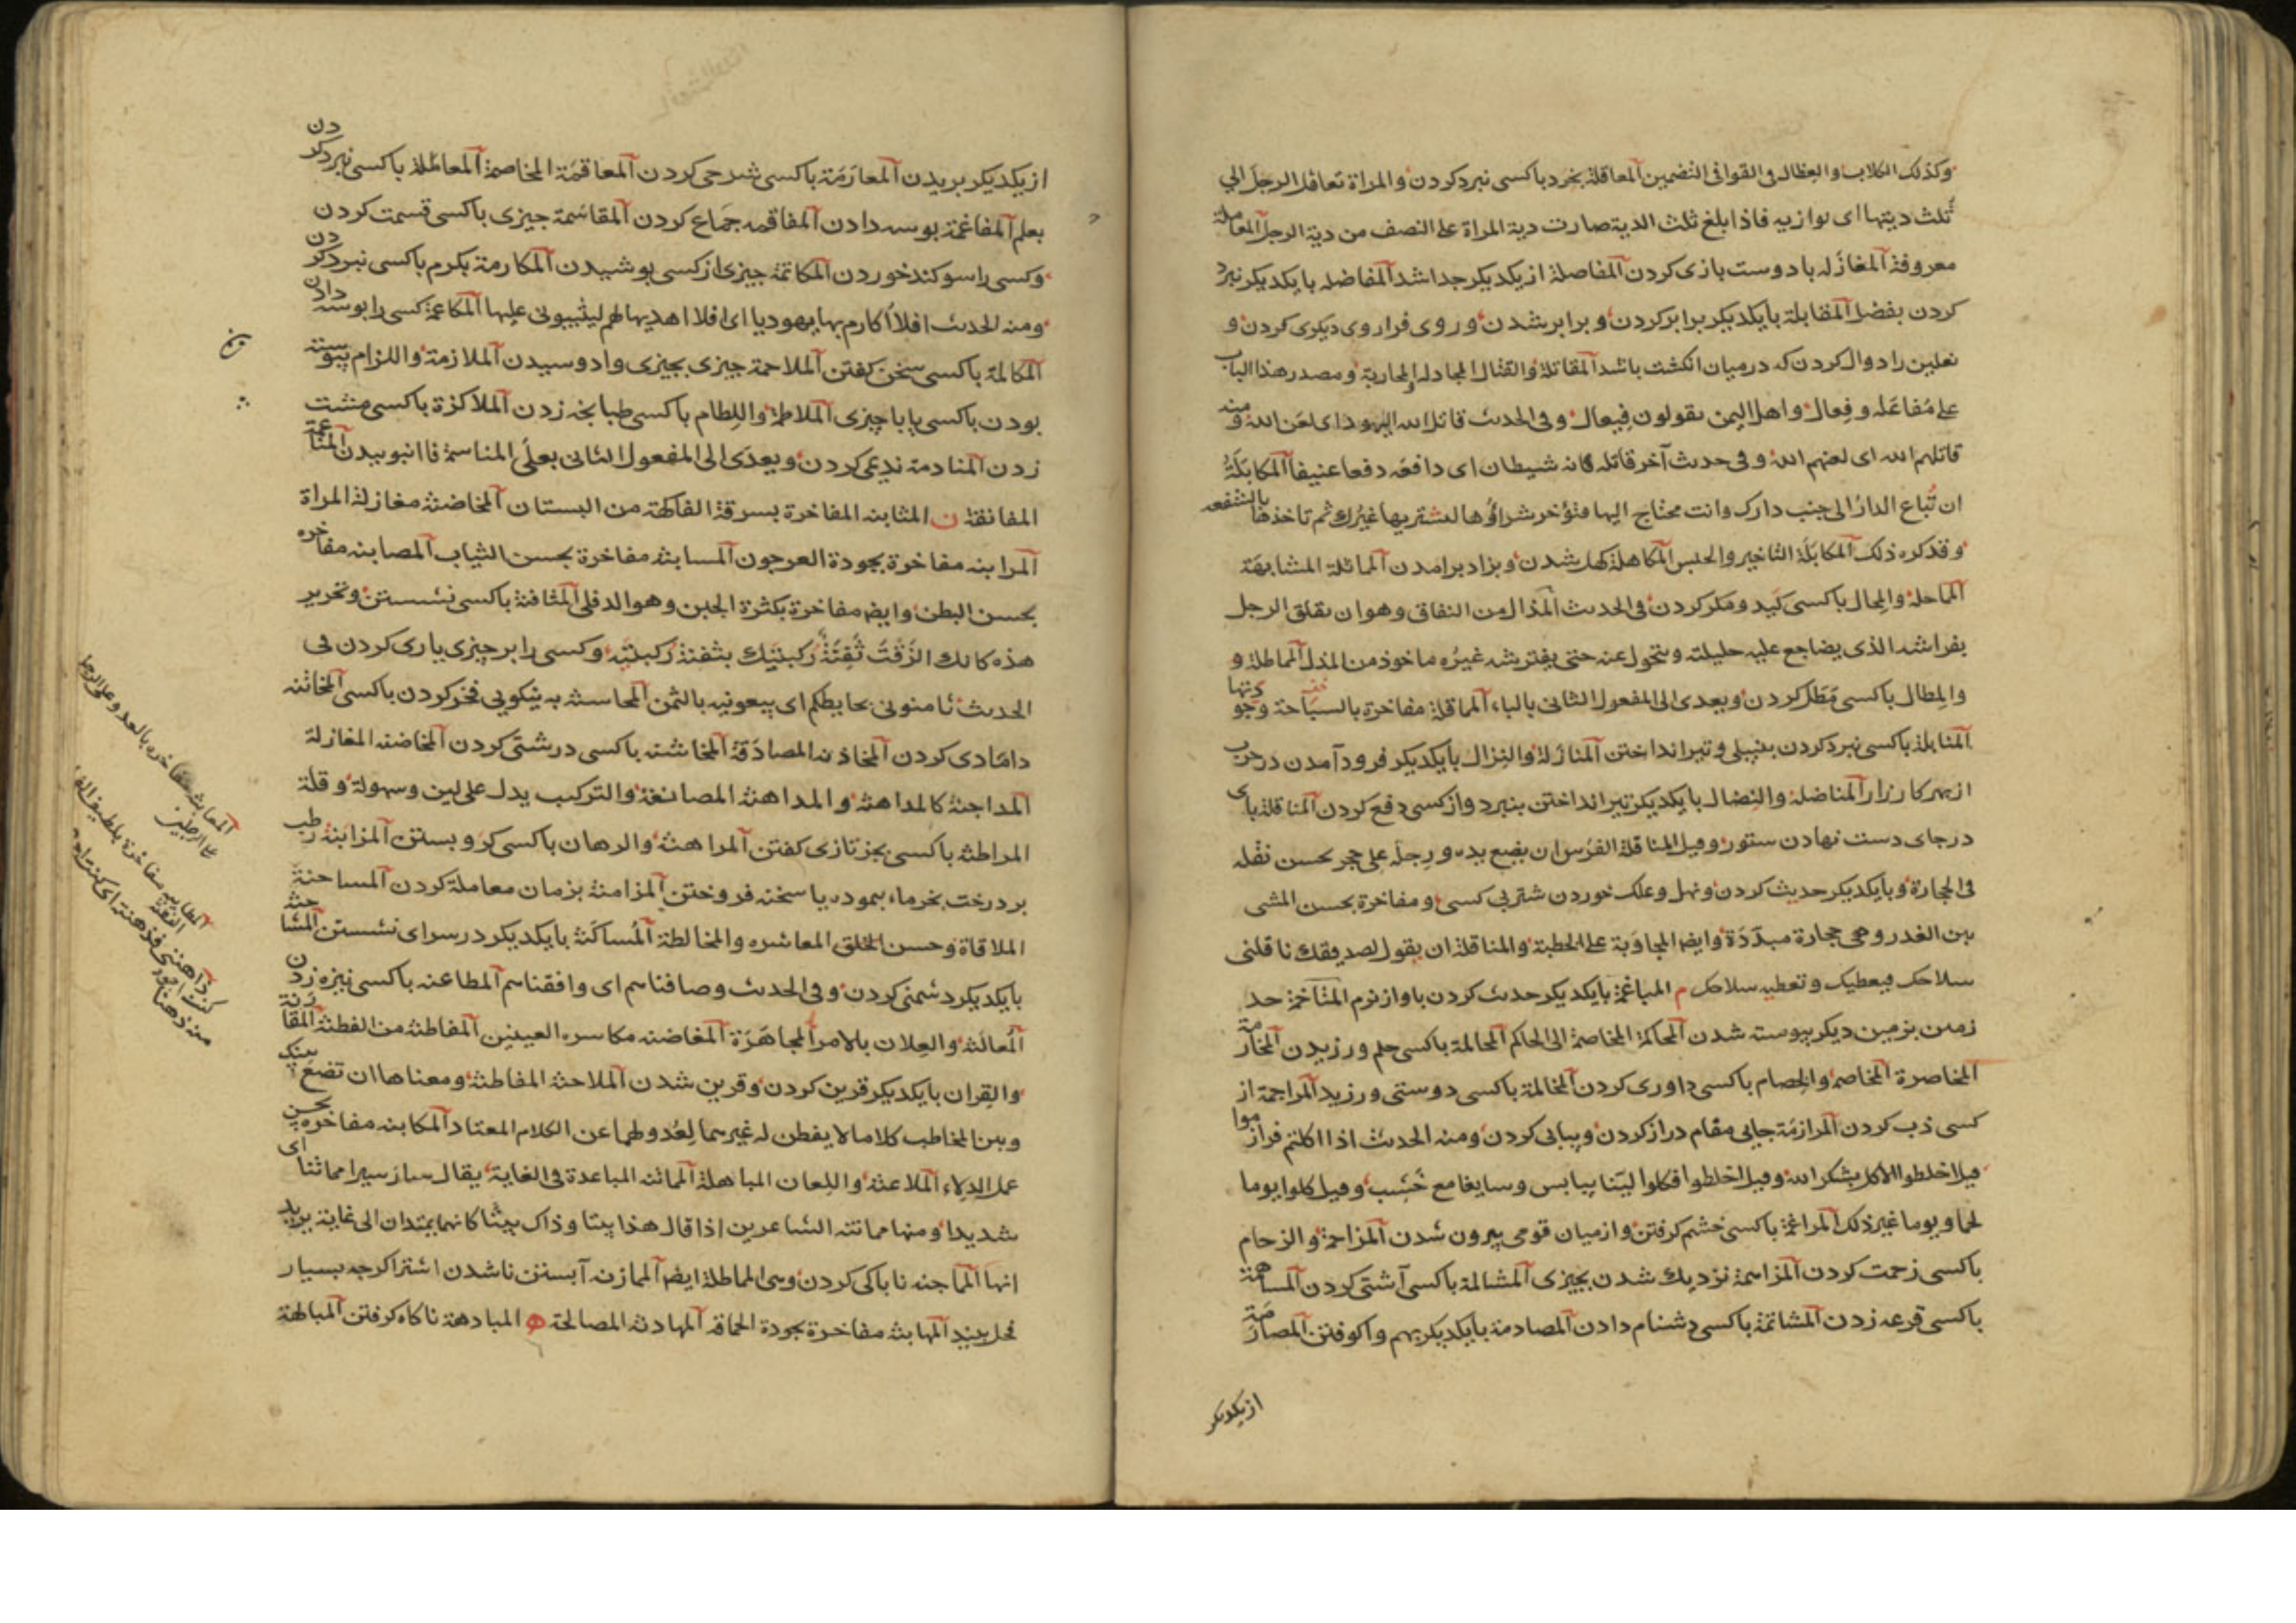 وكذلك الكلاب والعظال وفى القوافى التضمين المعاقلة بخرد باكسى نبرد كردن والمراة تعاقل الرجل الي
ثلث ديتها اى توازيه فاذا بلغ ثلث الدية صارت دية المراة على النصف من دية الرجل المعاملة
معروفة المغازله با دوست بازى كردن المفاصلة از يكديكر جدا شد المفاضله با يكديكر نبرد
كردن بفضل المقابلة بايكديكر برابر كردن وبرابر شدن وروى فرا روى ديكرى كردن و
نعلين را دوال كردن كه درميان انكشت باشد المقاتلة والقتال المجادله والمحاربة ومصدر هذا الباب
على مفاعله وفعال واهل اليمن يقولون فيعال وفى الحديث قاتل الله اليهود اى لعن الله ومنه
قاتلهم الله اى لعنهم الله وفى حديث آخر قاتله فانه شيطان اى دافعه دفعا عنيفا المكابلة
ان تباع الدار الى جنب دارك وانت محتاج اليها فتؤخر شراؤها ليشتريها غيرك ثم تاخذها بالشفعه
وقد كره ذلك المكابلة التاخير والحبس المكاهلة كهل شدن وبزاد برامدن المماثلة المشابهة
المماحلة والمحال باكسى كيد ومكر كردن فى الحديث المذال من النفاق وهو ان يقلق الرجل
بفراشه الذى يضاجع عليه حليلته ويتحول عنه حتى يفترشه غيره ماخوذ من المذل المماطلة و
والمطال باكسى مطل كردن ويعدى الى المفعول الثانى بالباء المماقلة مفاخرة بالسباحة وجودتها
المنابلة باكسى نبرد كردن بنيلى وتير انداختن المنازلة والنزال بايكديكر فرود آمدن در حرب
از بهر كارزار المناضلة والنضال بايكديكر تير انداختن بنبرد واز كسى دفع كردن المناقلة پاى
درجاى دست نهادن ستور وقيل المناقلة الفرس ان يضع يده ورجله على حجر بحسن نقله
فى الحجارة وبايكديكر حديث كردن ونهل وعلك خوردن شتر پى كسى ومفاخرة بحسن المشى
بين الغدر وهى حجارة مبددة وايضا المجاوبة على الخطبة والمناقلة ان يقول لصديقك ناقلنى
سلاحك فيعطيك وتعطيه سلاحك م المباغمة بايكديكر حديث كردن باواز نرم المتاخمة حد
زمين بزمين ديكر پيوسته شدن المحاكمة المخاصمة الى الحاكم المحالمة باكسى حلم ورزيدن المخارمة
المخاصرة المخاصمة والخصام باكسى داورى كردن المخالمة باكسى دوستى ورزيد المراجمة از
كسى ذب كردن المرازمة جايى مقام دراز كردن وپياپى كردن ومنه الحديث اذا اكلتم فرازموا
قيل اخلطوا الاكل بشكر الله وقيل اخلطوا فكلوا لينا بيابس وسايغا مع خشب وقيل كلوا يوما
لحما ويوما غير ذلك المراغمة باكسى خشم كرفتن واز ميان قومى بيرون شدن المزاحمة والزحام
باكسى زحمت كردن المزاسمة نزديك شدن بچيزى المسالمة باكسى آشتى كردن المساهمة
باكسى قرعه زدن المشاتمة باكسى دشنام دادن المصادمة بايكديكر بهم واكوفتن المصارمة
از يكديكر
از يكديكر بريدن المعارمة باكسى شرحى كردن المعاقمة المخاصمة المعاملة باكسى نبرد كردن
بعلم المفاغمة بوسه دادن المفاقمه جماع كردن المقاسمة چيزى باكسى قسمت كردن
وكسى را سوكند خوردن المكاتمة چيزى از كسى پوشيدن المكارمة بكرم باكسى نبرد كردن
ومنه الحديث افلا اكارم بها يهوديا اى افلا اهديها لهم ليثيبونى عليها المكاعمة كسى را بوسه دادن
المكالمة باكسى سخن كفتن الملاحمة چيزى بچيزى وادوسيدن الملازمة واللزام پيوسته
بودن باكسى يا با چيزى الملاطمة واللطام باكسى طبانچه زدن الملاكزة باكسى مشت
زدن المنادمة نديمى كردن ويعدى الى المفعول الثانى بعلى المناسمة فا انبوييدن المناعمة
المفانقة ن المثابنه المفاخرة بسرقة الفاكهة من البستان المخاضنة مغازلة المراة
المرابنه مفاخرة بجودة العرجون المسابنه مفاخرة بحسن الثياب المصابنه مفاخره
بحسن البطن وايضا مفاخرة بكثرة الجبن وهو الدفلى المثافنة باكسى نشستن وتحرير
هذه كانك الزقت ثفنة ركبتيك بثفنة ركبتيه وكسى را بر چيزى يارى كردن فى
الحديث ثامنونى بحايطكم اى بيعونيه بالثمن المحاسنه به نيكويى فخر كردن باكسى المخاتنه
دامادى كردن المخادنه المصادقة المخاشنه باكسى درشتى كردن المخاضنه المغازلة
المداجنة كالمداهنة والمداهنة المصانعة والتركيب يدل على لين وسهولة وقلة
المراطنة باكسى بجز تازى كفتن المراهنة والرهان باكسى كرو بستن المزابنة رطب
بر درخت بخرماء پيموده يا سخته فروختن المزامنة بزمان معاملة كردن المساحنة
الملاقاة وحسن الخلق المعاشره والمخالطة المساكنة بايكديكر درسراى نشستن المشاحنة
بايكديكر دشمنى كردن وفى الحديث وصافناسم اى واقفناسم المطاعنه باكسى نيزه زدن
المعالنة والعلان بالامر المجاهرة المغاضنه مكاسره العينين المفاطنة من الفطنة المقارنة
والقران بايكديكر قرين كردن وقرين شدن الملاحنة المفاطنة ومعناها ان تضع بينك
وبين المخاطب كلاما لا يفطن له غيرسما لعدولهما عن الكلام المعتاد المكابنه مفاخره بحسن
عمل الدلاء الملاعنة واللعان المباهلة المماتنه المباعدة فى الغاية يقال سار سيرا مماتنا اى
شديدا ومنها مماتنه الشاعرين اذا قال هذا بيتا وذاك بيتا كانهما يمتدان الى غاية يريد
انها المماجنه ناباكى كردن وهى المماطلة ايضا الممازنه آبستن ناشدن اشتر اكرچه بسيار
فحل بيند المهابنه مفاخرة بجودة الحماقه المهادنه المصالحة ه المبادهة ناكاه كرفتن المباهة